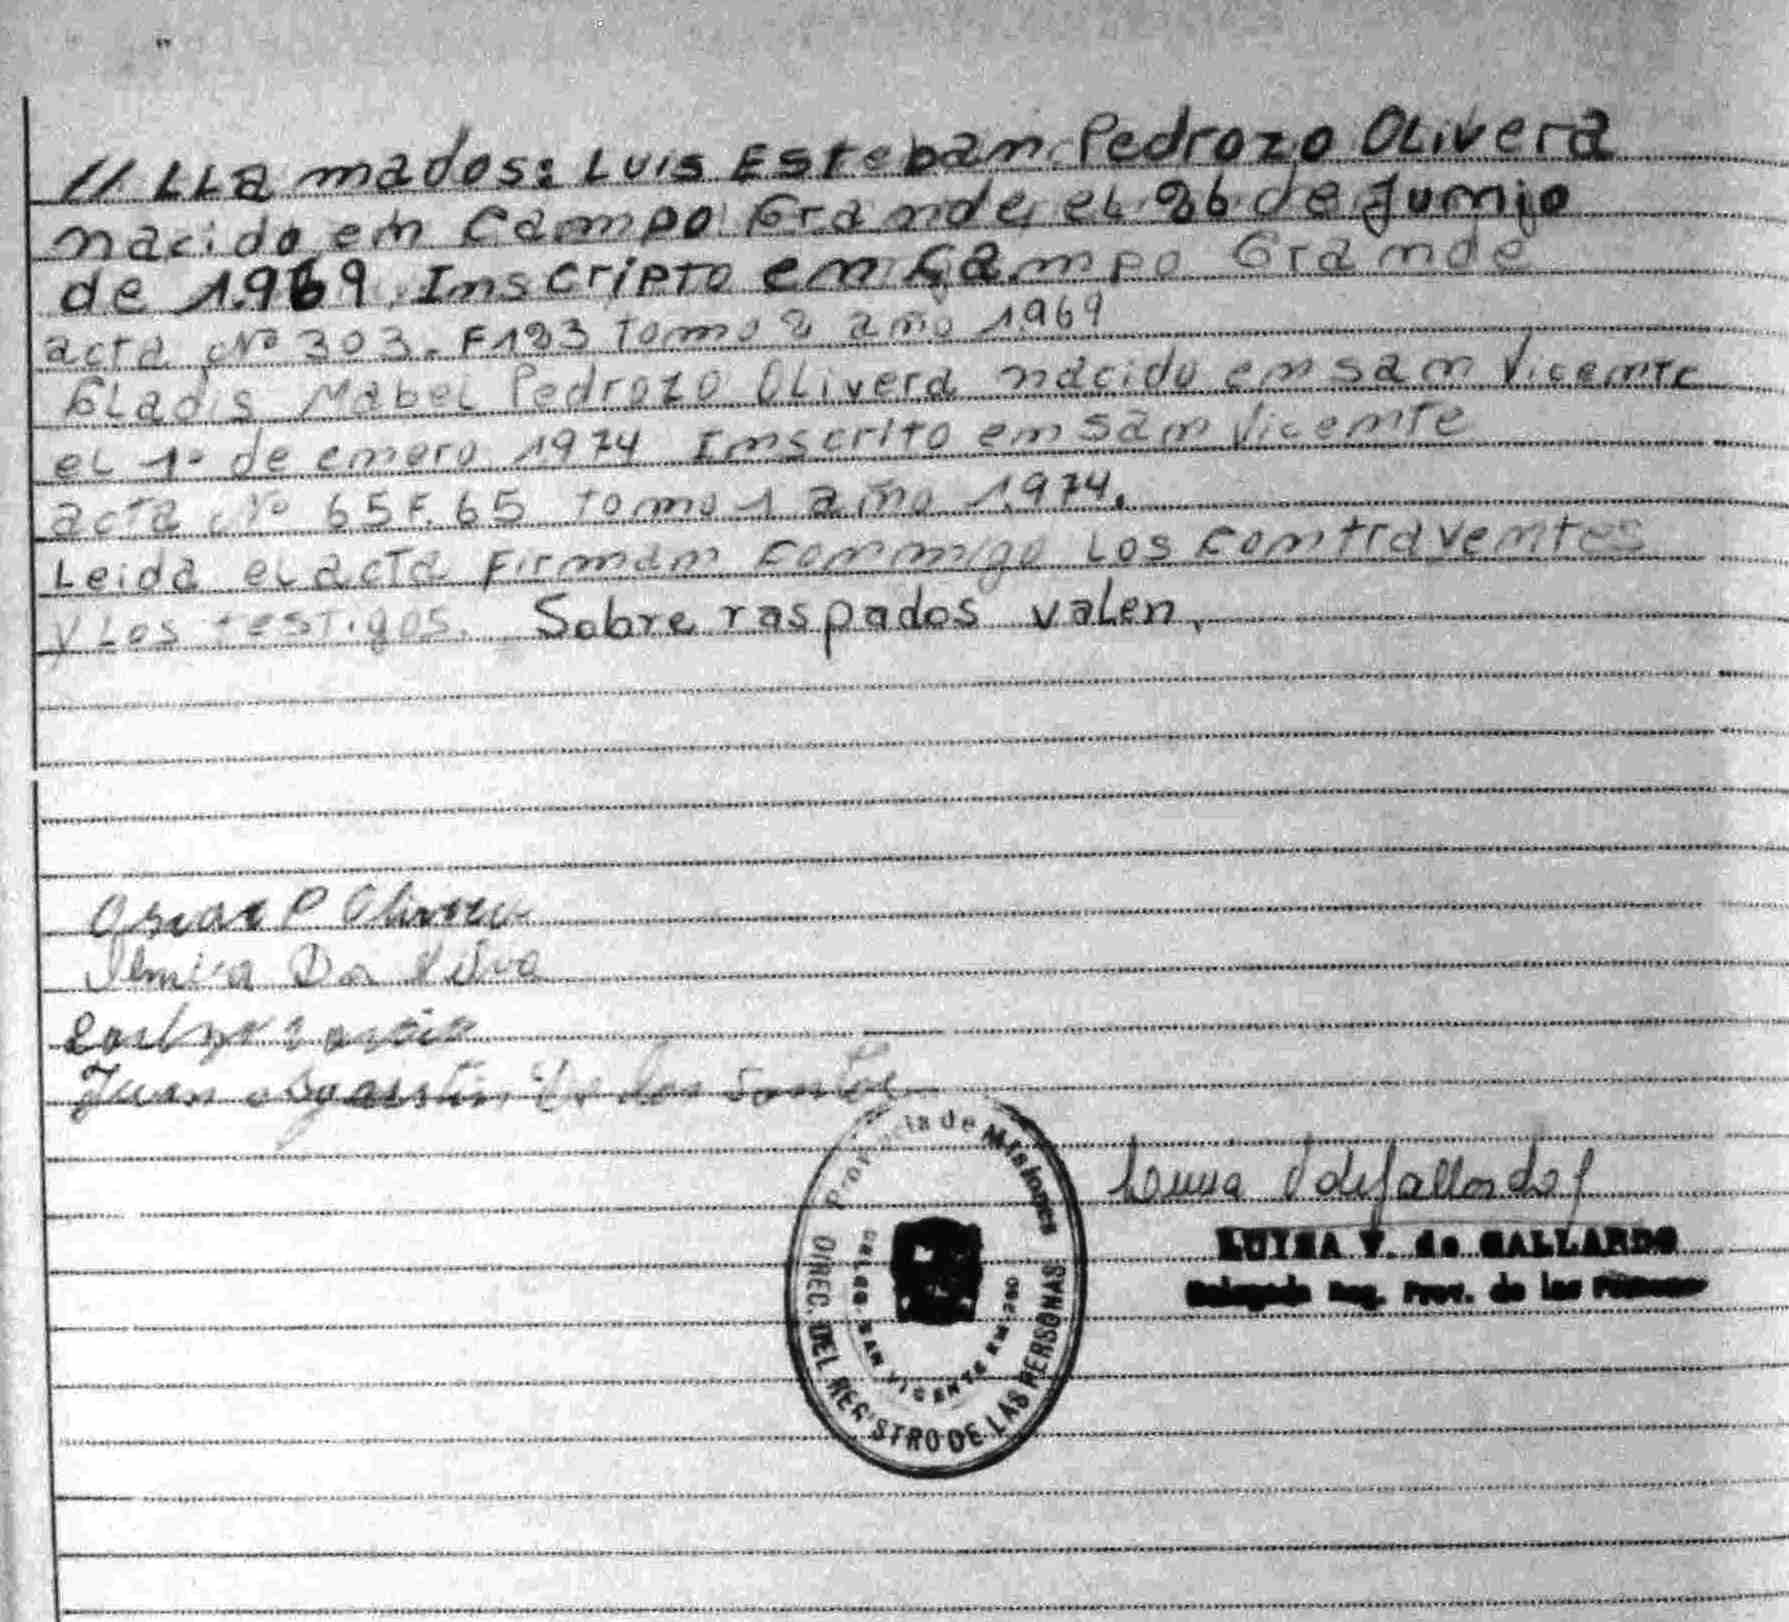 // LLamados: Luis Esteban Pedrozo Olivera
nacido en Campo Grande, el 26 de Junio
de 1.969, Inscripto en Campo Grande
acta Nº 303. F123 Tomo 2 año 1969
Gladis Mabel Pedrozo Olivera nacido en san Vicente
el 1º de enero 1974 Inscrito en san Vicente
acta Nº 65 F. 65 tomo 1 año 1.974.
Leida el acta Firman conmigo Los contraventes
y Los testigos. Sobre raspados valen.
Oscar P Olivera
Da Silva
Juan Agustin De los Santos
Provincia de Misiones
DIREC. DEL REGISTRO DE LAS PERSONAS
SAN VICENTE KM-
LUISA V. de GALLARDO
Delegada Reg. Prov. de las Personas